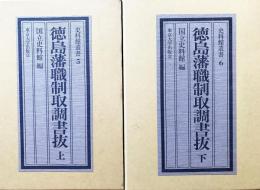 史料館叢書 5
徳島藩職制取調書抜 上
国立史料館 編
東京大学出版会
史料館叢書 6
徳島藩職制取調書抜 下
国立史料館 編
東京大学出版会